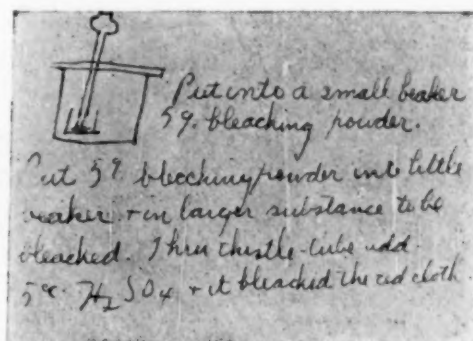 Put into a small beaker
5g. bleaching powder.
Put 5g bleaching powder into little
beaker + in larger substance to be
bleached. Thru thistle-tube add
5cc. H2SO4 + it bleached the red cloth